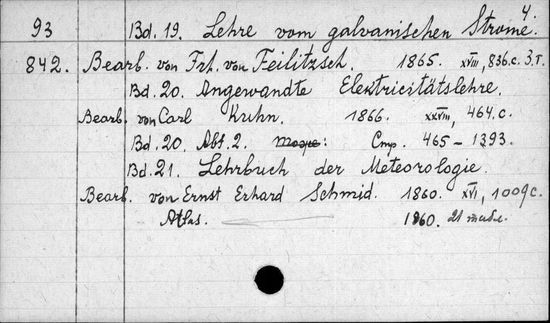 4.
93 Bd. 19. Lehre vom galvanischen Strome.
842. Bearb. von Frh. von Feilitzsch. 1865. XVIII, 836 с. 3 т.
Bd. 20. Angewandte Elektricitätslehre.
Bearb. von Carl Kuhn. 1866. XXVIII, 464 с.
Bd. 20. Abt. 2. : Стр. 465 – 1393.
Bd. 21. Lehrbuch der Meteorologie.
Bearb. von Ernst Erhard Schmid. 1860. XVI, 1009 с.
Atlas. 1860. 21 табл.